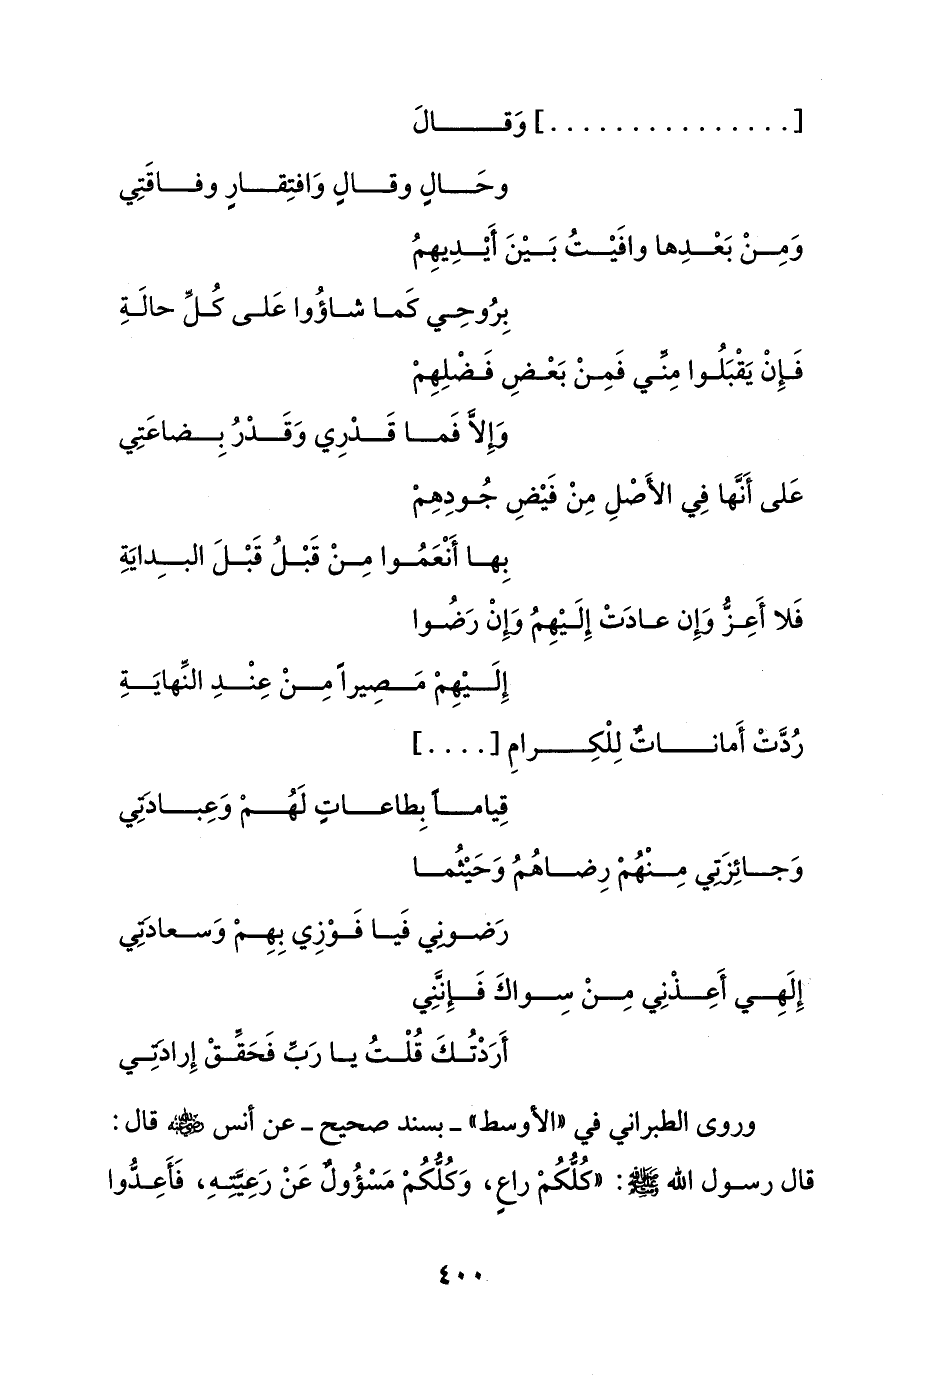 [...............] وَقَـــــــالَ
وحَـــالٍ وقـــالٍ وَافتِقـــارٍ وفـــاقَتِي
وَمِـــنْ بَعْـــدِها وافَيْـــتُ بَـــيْنَ أَيْـــدِيهِمُ
بِرُوحِـي كَمـا شـاؤُوا عَلـى كُـلِّ حالَـةِ
فَـإِنْ يَقْبَلُـوا مِنِّـي فَمِـنْ بَعْـضِ فَـضْلِهِمْ
وَإِلاَّ فَمـــا قَـــدْرِي وَقَـــدْرُ بِـــضاعَتِي
عَلى أَنَّها فِي الأَصْلِ مِنْ فَيْضِ جُـودِهِمْ
بِهـا أَنْعَمُـوا مِـنْ قَبْـلُ قَبْـلَ البِـدايَةِ
فَلا أَعِـزُّ وَإِن عـادَتْ إِلَـيْهِمُ وَإِنْ رَضُـوا
إِلَـــيْهِمْ مَـــصِيراً مِـــنْ عِنْـــدِ النِّهايَـــةِ
رُدَّتْ أَمانـــــاتٌ لِلْكِـــــرامِ [....]
قِيامـــاً بِطاعـــاتٍ لَهُـــمْ وَعِبـــادَتِي
وَجـــائِزَتِي مِـــنْهُمْ رِضـــاهُمُ وَحَيْثُمـــا
رَضُـونِي فَيـا فَـوْزِي بِهِـمْ وَسـعادَتِي
إِلَهِـــي أَعِـــذْنِي مِـــنْ سِـــواكَ فَـــإِنَّنِي
أَرَدْتُـكَ قُلْـتُ يـا رَبِّ فَحَقِّـقْ إِرادَتِـي
وروى الطبراني في «الأوسط» ـ بسند صحيح ـ عن أنس ﵁ قال:
قال رسول الله ﷺ: «كُلُّكُمْ راعٍ، وَكُلُّكُمْ مَسْؤُولٌ عَنْ رَعِيَّتِهِ، فَأَعِـدُّوا
٤٠٠